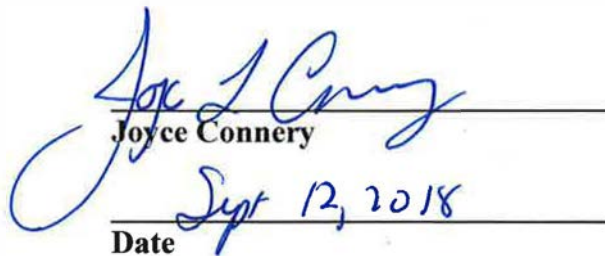 Joyce L Connery
Joyce Connery
Sept 12, 2018
Date